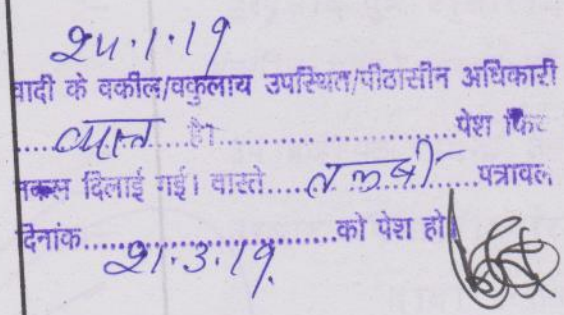 24.1.19
वादी के वकील/वकुलाय उपस्थित/पीठासीन अधिकारी
.....व्यस्त.....है।........................पेश फिट
नकस दिलाई गई। वास्ते.....तलबी.....पत्रावल
दिनांक..................................को पेश हो।
21.3.19.